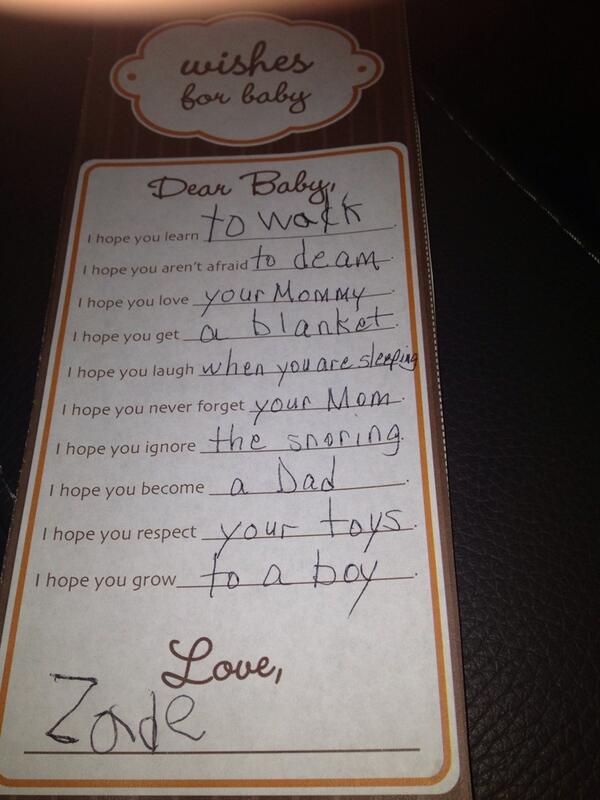 wishes
for baby
Dear Baby,
I hope you learn to walk.
I hope you aren't afraid to deam.
I hope you love your Mommy.
I hope you get a blanket.
I hope you laugh when you are sleeping
I hope you never forget your Mom.
I hope you ignore the snoring.
I hope you become a Dad.
I hope you respect your toys.
I hope you grow to a boy.
Love,
Zade